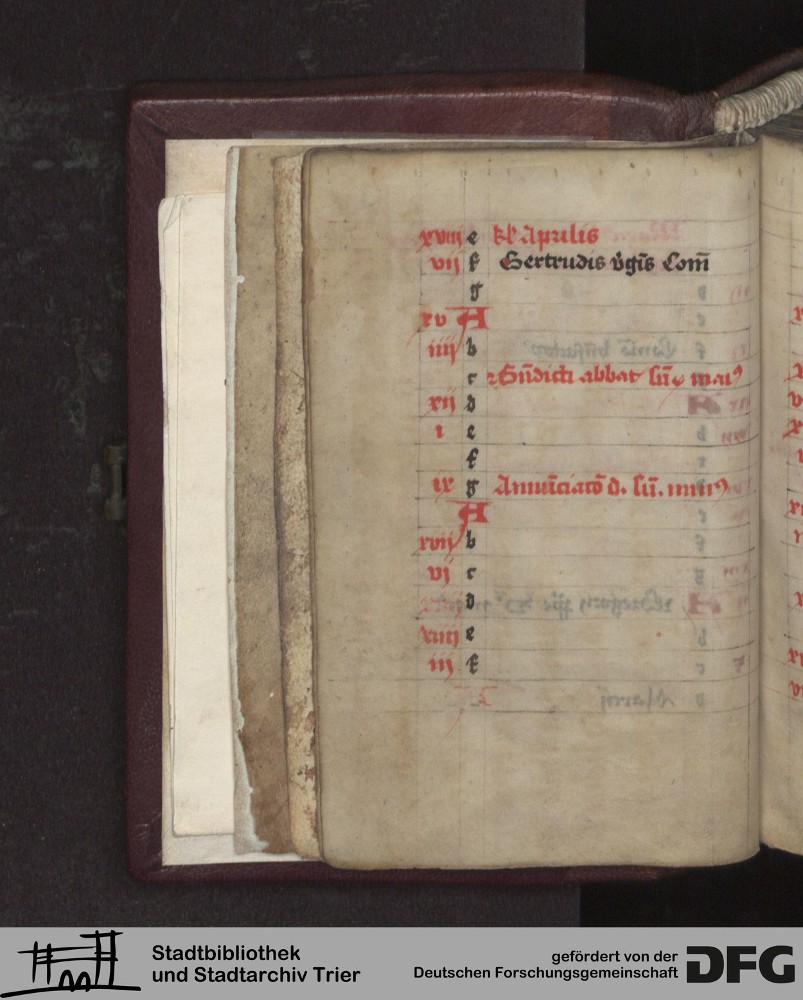 xviij e kl' Aprilis
vij f Gertrudis v̄gīs Com̄
g
xv A
iiij b
c Bn̄dicti abbat sūm mai9
xij d
i e
f
ix g Annūciatō d. sūm.
A
xvij b
vj c
d
xiiij e
iij f
Stadtbibliothek
und Stadtarchiv Trier
gefördert von der
Deutschen Forschungsgemeinschaft
DFG